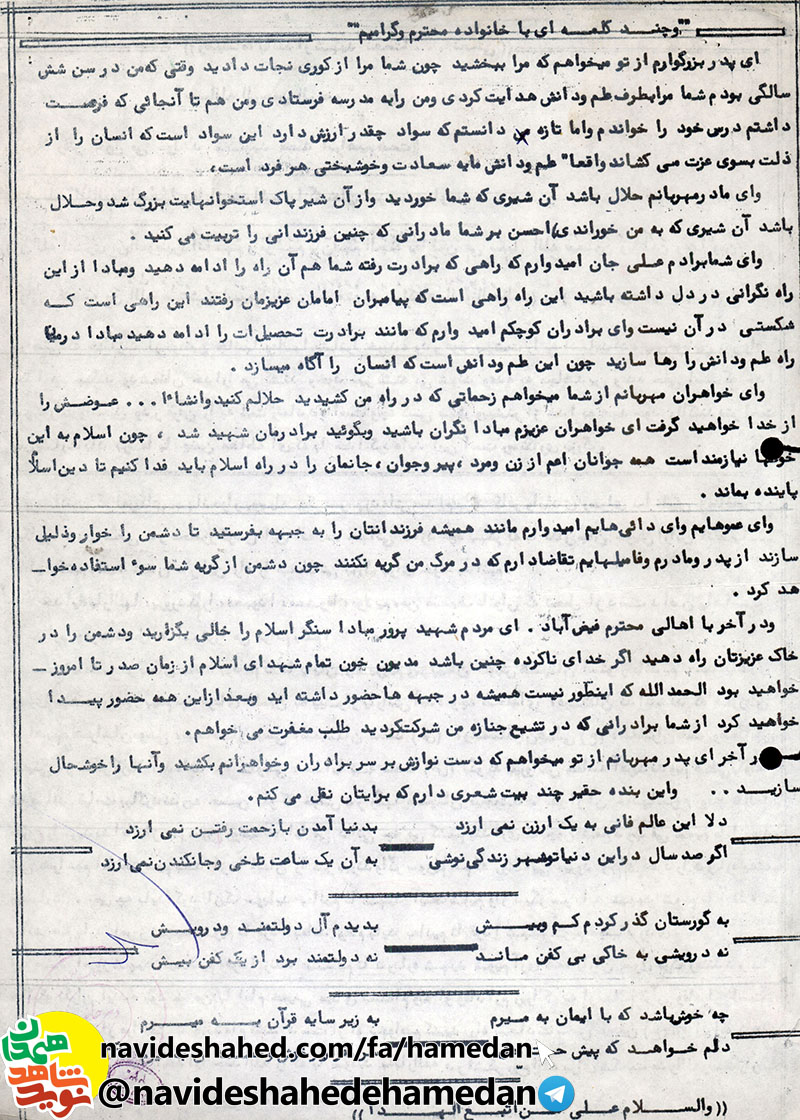 ""وچند کلمه ای با خانواده محترم وگرامیم""
ای پدر بزرگوارم از تو میخواهم که مرا ببخشید چون شما مرا از کوری نجات دادید وقتی که من در سن شش
سالگی بودم شما مرا بطرف علم ودانش هدایت کردی ومن را به مدرسه فرستادی ومن هم تا آنجائی که فرصت
داشتم درس خود را خواندم واما تازه می دانستم که سواد چقدر ارزش دارد این سواد است که انسان را از
ذلت بسوی عزت می کشاند واقعا" علم ودانش مایه سعادت وخوشبختی هر فرد است،
وای مادر مهربانم حلال باشد آن شیری که شما خوردید واز آن شیر پاک استخوانهایت بزرگ شد وحلال
باشد آن شیری که به من خوراندی/احسن بر شما مادرانی که چنین فرزندانی را تربیت می کنید .
وای شما برادرم علی جان امیدوارم که راهی که برادرت رفته شما هم آن راه را ادامه دهید ومبادا از این
راه نگرانی در دل داشته باشید این راه راهی است که پیامبران امامان عزیزمان رفتند این راهی است کـه
شکستی در آن نیست وای برادران کوچکم امید وارم که مانند برادرت تحصیل‌ات را ادامه دهید مبادا در میا
راه علم ودانش را رها سازید چون این علم ودانش است که انسان را آگاه میسازد .
وای خواهران مهربانم از شما میخواهم زحماتی که در راه من کشیدید حلالم کنید وانشاءا ... عوضش را
از خدا خواهید گرفت ای خواهران عزیزم مبادا نگران باشید وبگوئید برادرمان شهید شد ، چون اسلام به این
خونها نیازمند است همه جوانان اعم از زن ومرد ،پیر وجوان ،جانمان را در راه اسلام باید فدا کنیم تا دین اسلا
پاینده بماند .
وای عموهایم وای دائی‌هایم امیدوارم مانند همیشه فرزندانتان را به جبهه بفرستید تا دشمن را خوار وذلیل
سازند از پدر ومادرم وفامیلهایم تقاضا دارم که در مرگ من گریه نکنند چون دشمن از گریه شما سوء استفاده خوا ـ
هد کرد .
ودر آخر با اهالی محترم فیض آباد . ای مردم شهید پرور مبادا سنگر اسلام را خالی بگزارید ودشمن را در
خاک عزیزتان راه دهید اگر خدای ناکرده چنین باشد مدیون خون تمام شهدای اسلام از زمان صدر تا امروز ـ
خواهید بود الحمد الله که اینطور نیست همیشه در جبهه ها حضور داشته اید وبعد از این همه حضور پیــدا
خواهید کرد از شما برادرانی که در تشیع جنازه من شرکت کردید طلب مغفرت می خواهم.
ر آخر ای پدر مهربانم از تو میخواهم که دست نوازش بر سر برادران وخواهرانم بکشید وآنها را خوشحال
سازیــد . . واین بنده حقیر چند بیت شعری دارم که برایتان نقل می کنم .
دلا این عالم فانی به یک ارزن نمی ارزد بدنیا آمدن با زحمت رفتــن نمی ارزد
اگر صد سال در این دنیا تو شهر زندگی نوشی به آن یک ساعت تلخی وجانکندن نمی ارزد
به گورستان گذر کردم کــم وبیــش بدیدم آل دولتمنــد ودرویــش
نه درویشی به خاکی بی کفن مانــد نه دولتمند برد از یک کفن بیــش
چه خوش باشد که با ایمان به میرم به زیر سایه قرآن بــه میــرم
دلم خواهــد که پیش
navideshahed.com/fa/hamedan
@navideshahedehamedan
نوید شاهد همدان
((والسـلام علــی مــن اتبــع الهــدا))